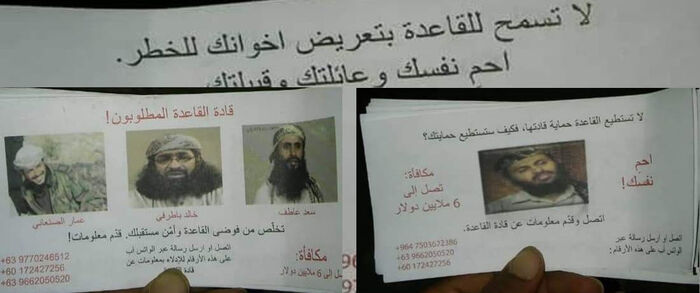 لا تسمح للقاعدة بتعريض اخوانك للخطر.
احم نفسك وعائلتك وقبيلتك
قادة القاعدة المطلوبون!
عمار الصنعاني
خالد باطرفي
سعد عاطف
تخلّص من فوضى القاعدة وأمّن مستقبلك، قدّم معلومات!
مكافأة:
تصل إلى 6 ملايين دولار
اتصل او ارسل رسالة عبر الواتس آب
على هذه الأرقام للإدلاء بمعلومات عن
قادة
+63 9770246512
+60 172427256
+63 9662050520
لا تستطيع القاعدة حماية قادتها، فكيف ستستطيع حمايتك؟
احمِ
نفسك!
مكافأة:
تصل إلى
6 ملايين دولار
اتصل وقدّم معلومات عن قادة القاعدة.
اتصل او ارسل رسالة عبر
الواتس آب على هذه الأرقام:
+964 7503672386
+63 9662050520
+60 172427256